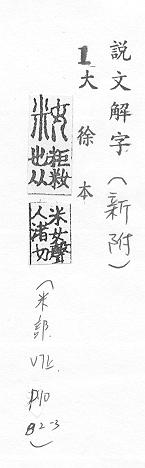 說文解字(新附)
1大徐本
籹
粔籹
也从
米女聲
人渚切
(米部. V7上. P10 B2-3)